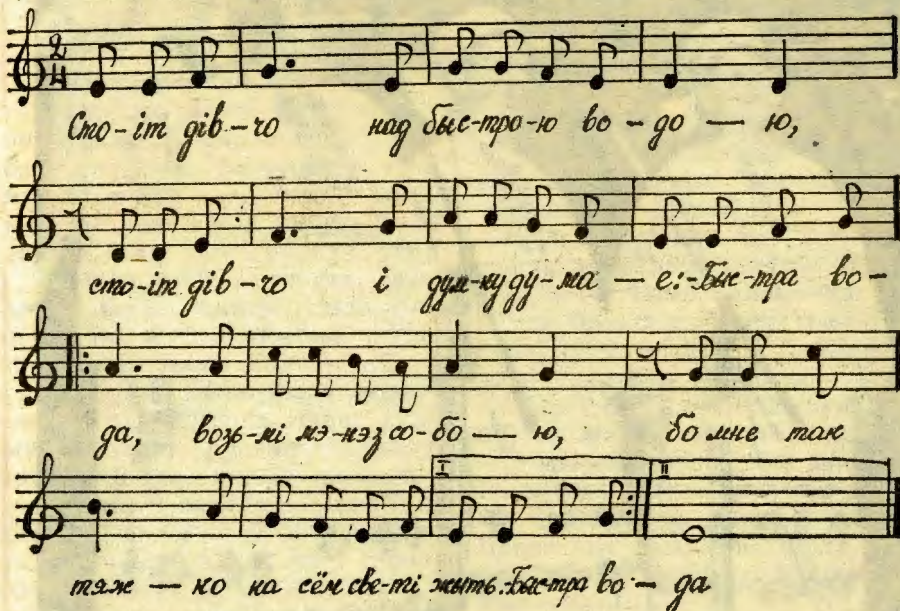 2 4
Сто-іт дів-чо над быс-тро-ю во-до — ю,
сто-іт дів-чо і дум-ку ду-ма — е:-Быс-тра во-
да, возь-мі мэ-нэ з со-бо — ю, бо мне так
I II
тяж — ко на сём све-ті жыть.-Быс-тра во — да